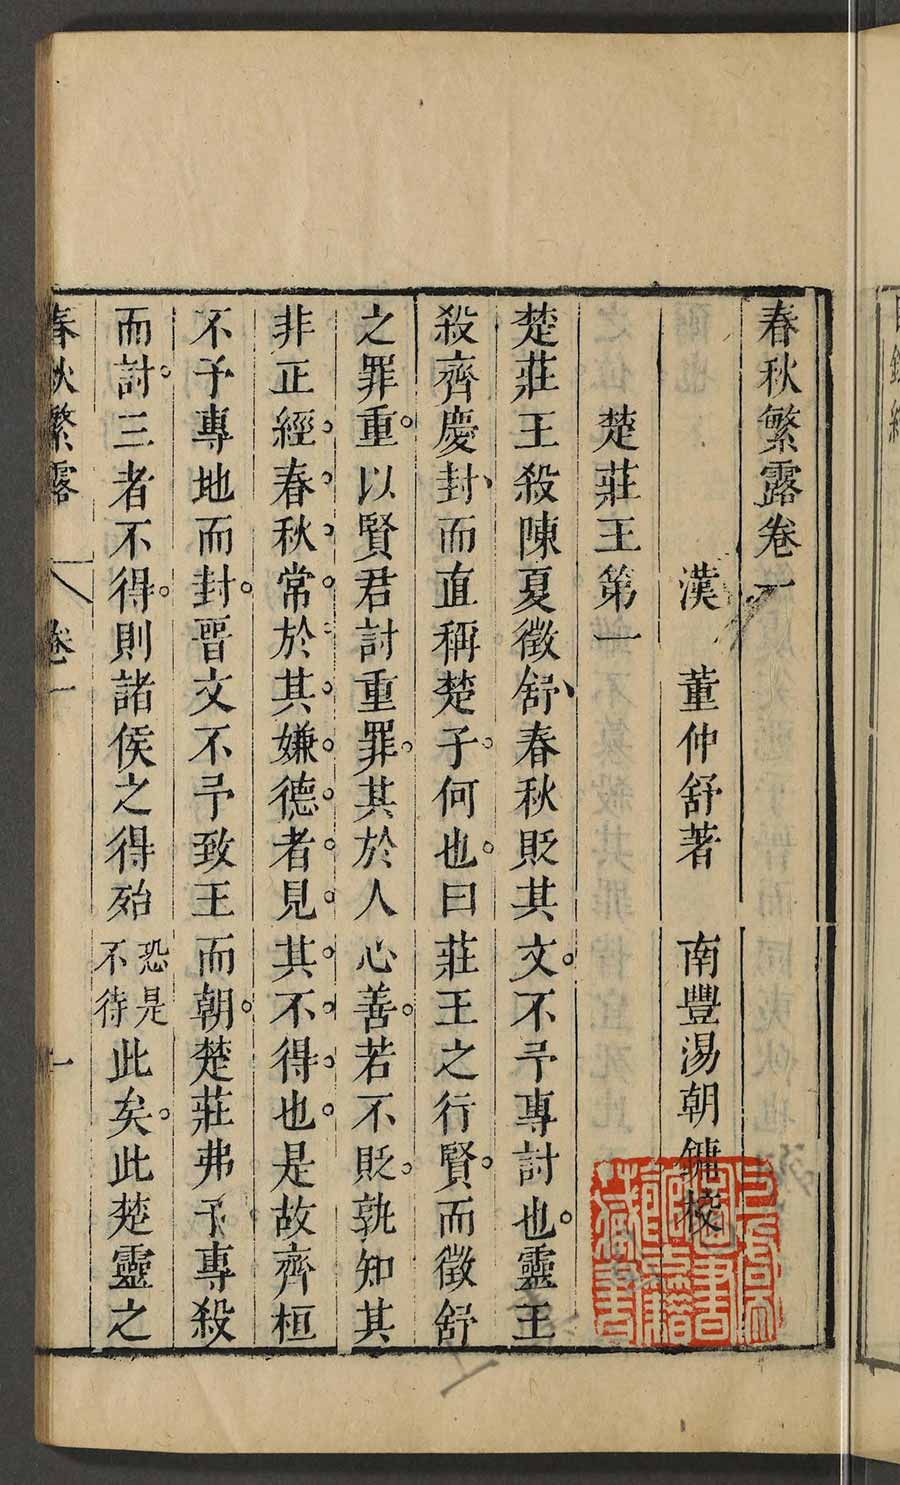 春秋繁露卷一
漢 董仲舒著 南豐湯朝鏞校
楚莊王第一
楚莊王殺陳夏徵舒春秋貶其文不予專討也靈王
殺齊慶封而直稱楚子何也曰莊王之行賢而徵舒
之罪重以賢君討重罪其於人心善若不貶孰知其
非正經春秋常於其嫌德者見其不得也是故齊桓
不予專地而封晉文不予致王而朝楚莊弗予專殺
而討三者不得則諸侯之得殆恐是不待此矣此楚靈之
春秋繁露 卷一 一